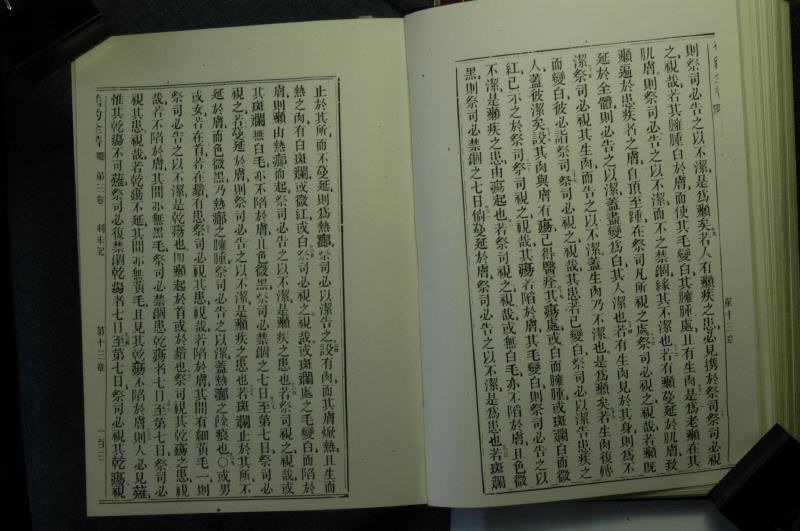 則祭司必告之以不潔是爲癩矣若人有癩疾之患必見攜於祭司祭司必視
之視哉若其臃腫白於膚而使其毛變白其臃腫處且有生肉是爲老癩在其
肌膚則祭司必告之以不潔而不之禁錮緣其不潔也若有癩蔓延於肌膚致
癩遍於患疾者之膚自頂至踵在祭司凡所視之處祭司必視之視哉若癩既
延於全體則必告之以潔蓋盡變爲白其人潔也若有生肉見於其身則爲不
潔祭司必視其生肉而告之以不潔蓋生肉乃不潔也是爲癩矣若生肉復轉
而變白彼必詣祭司祭司必視之視哉其患若已變白祭司必以潔告患疾之
人蓋彼潔矣設其肉與膚有瘍已得醫痊其瘍處或白而臃腫或斑斕白而微
紅已示之於祭司祭司視之視哉其瘍若陷於膚其毛變白則祭司必告之以
不潔是癩疾之患由瘍起也若祭司視之視哉或無白毛亦不陷於膚且色微
黑則祭司必禁錮之七日倘蔓延於膚祭司必告之以不潔是癩疾之患也若斑斕
止於其所而不蔓延則爲熱瘤祭司必以潔告之設有肉而其膚焮熱且生而
熱之肉有白斑斕或微紅或白祭司必視之視哉或斑斕處之毛變白而陷於
膚則癩由熱瘤而起祭司必告之以不潔是癩疾之患也若祭司視之視哉或
其斑斕無白毛亦不陷於膚且色微黑祭司必禁錮之七日至第七日祭司必
視之若蔓延於膚則祭司必告之以不潔是癩疾之患也若斑斕止於其所不
延於膚而色微黑乃熱瘤之臃腫祭司必告之以潔蓋熱瘤之餘痕也○或男
或女若在首若在鬚有患祭司必視其患視哉若陷於膚其間有細黃毛則
祭司必告之以不潔是乾瘍也卽癩起於首或於鬚也祭司視其乾瘍之患視
哉若不陷於膚其間亦無黑毛祭司必禁錮患乾瘍者七日至第七日祭司必
視其患視哉若乾瘍不延其間亦無黃毛且見其乾瘍不陷於膚則人必見薙
惟其乾瘍不可薙祭司必復禁錮乾瘍者七日至第七日祭司必視其乾瘍視
第三卷 利未記 第十三章 一百三